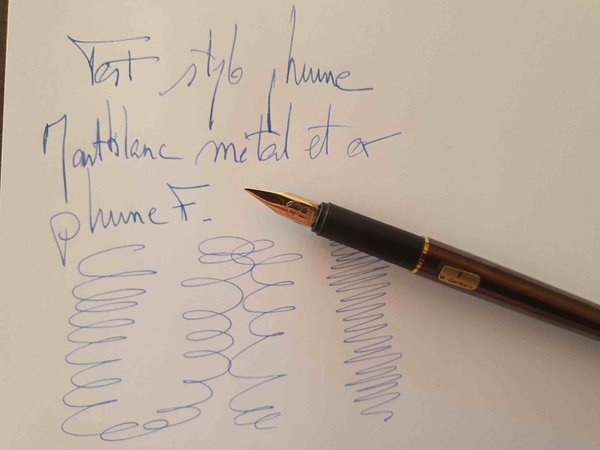 Test stylo plume
Montblanc métal et or
plume F.
F
W. Germany